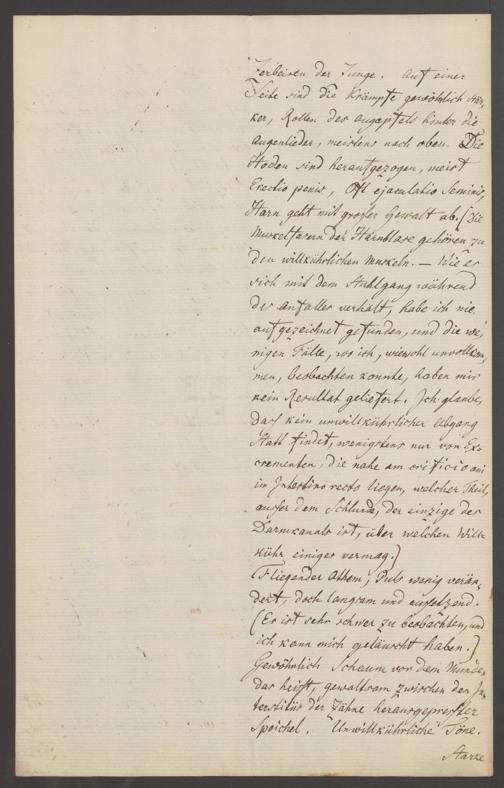 Zerbeisen der Zunge. Auf einer
Seite sind die Krämpfe gewöhnlich stär-
ker, Rollen des Augapfels hinter die
Augenlieder, meistens nach oben. Die
Hoden sind heraufgezogen, meist
Erectio penis, Oft ejaculatio Seminis,
Harn geht mit großer Gewalt ab. (Die
Muskelfasern der Harnblase gehören zu
den willkührlichen Muskeln. — Wie es
sich mit dem Stuhlgang während
des Anfalles verhält, habe ich nie
aufgezeichnet gefunden, und die we-
nigen Fälle, wo ich, wiewohl unvollkom-
men, beobachten konnte, haben mir
kein Resultat geliefert. Ich glaube,
daß kein unwillkührlicher Abgang
Statt findet, wenigstens nur von Ex-
crementen, die nahe am orificio ani
in Intestino recto liegen, welcher Theil,
außer dem Schlunde, der einzige des
Darmkanals ist, über welchen Will-
kühr einiges vermag.)
Fliegender Athem, Puls wenig verän-
dert, doch langsam und aussetzend.
(Es ist sehr schwer zu beobachten, und
ich kann mich getäuscht haben.)
Gewöhnlich Schaum vor dem Munde,
das heißt, gewaltsam zwischen den In-
terstitiis der Zähne herausgepresster
Speichel. Unwillkührliche Töne.
Starke